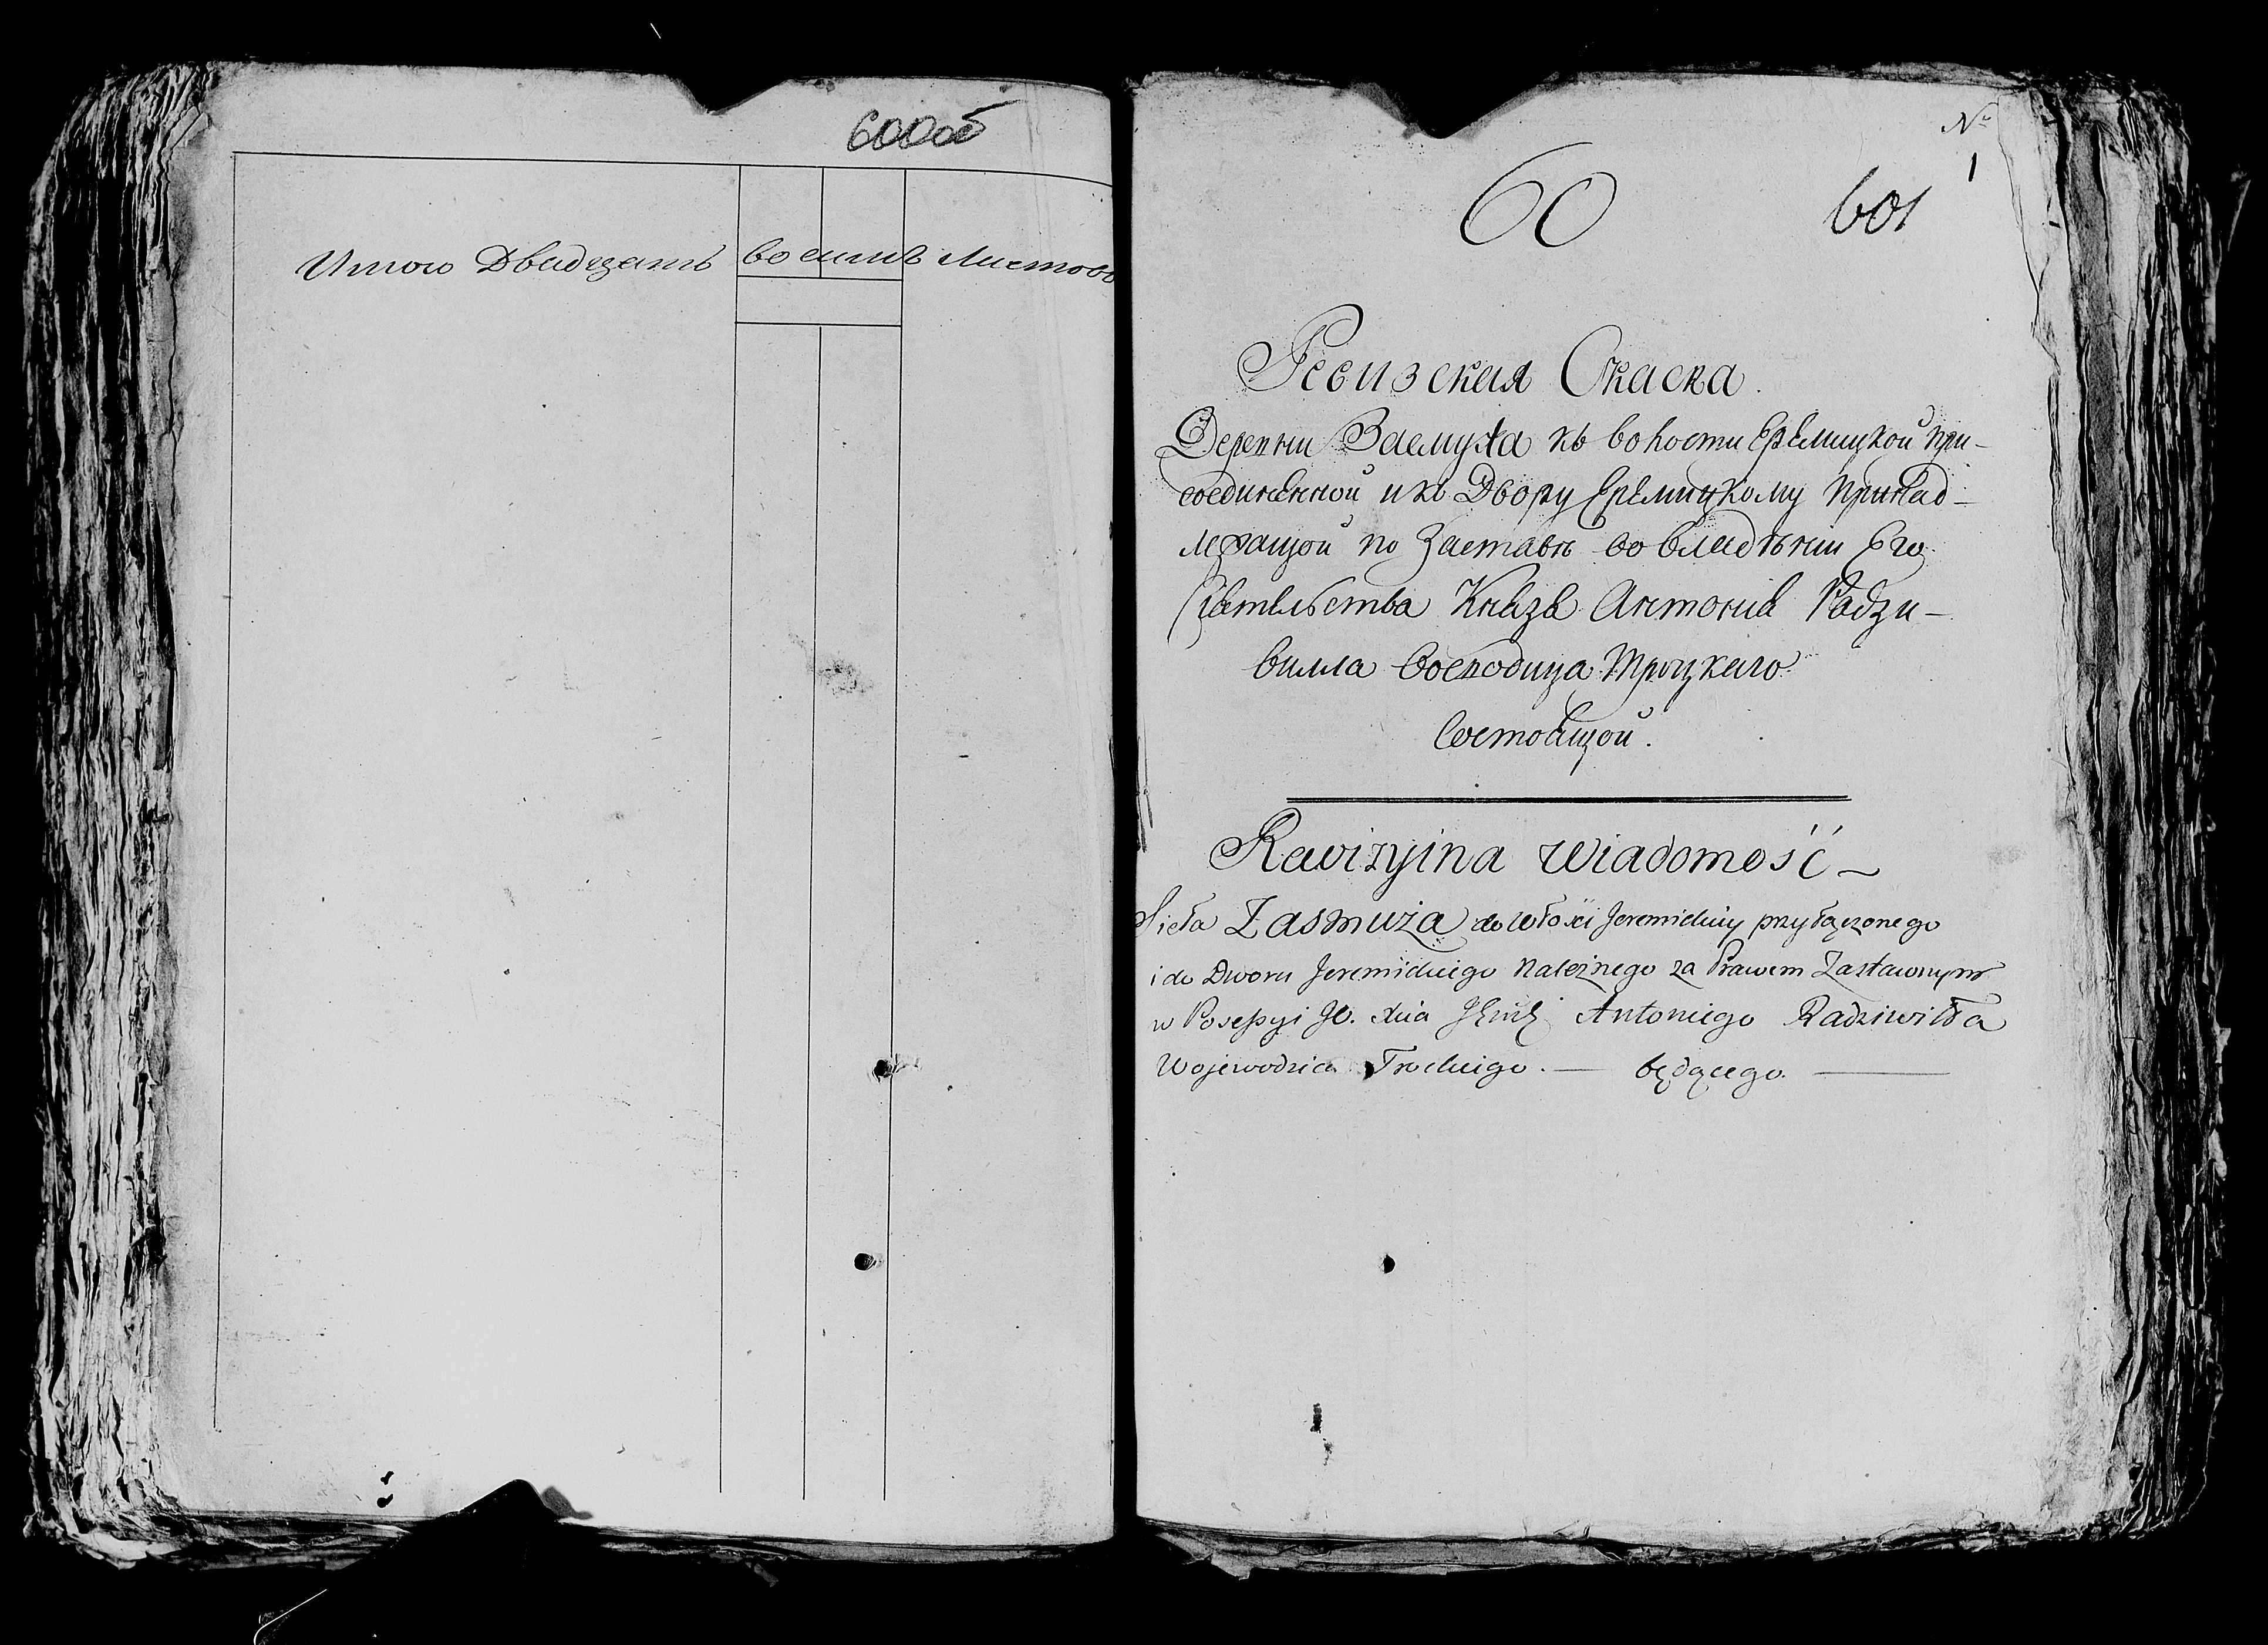 600об
Итого Двадцать восемь Листовъ
№
1
60
601
Ревизская Скаска.
Деревни Засмужа къ волости Еремицкой при-
соединенной и къ Двору Еремицкому принад-
лежащой по Заставѣ во владѣнии Его
Сіятельства Князя Антонія Радзи-
вилла Воеводица Троцкаго
Состоящой.
Rewizyina Wiadomość
Sioła Zasmuża do Włości Jeremickiey przyłączonego
i do Dworu Jeremickiego Należnego za Prawem Zastawnym
w Possessyi JO. Xcia Antoniego Radziwiłła
Wojewodzica Trockiego. — będącego. —